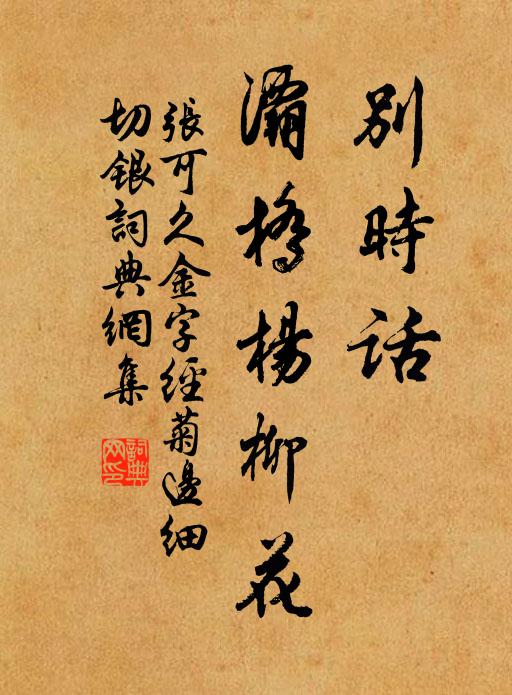 別時話
灞橋楊柳花
張可久金字經菊邊細
切銀詞典網集
詞典網印